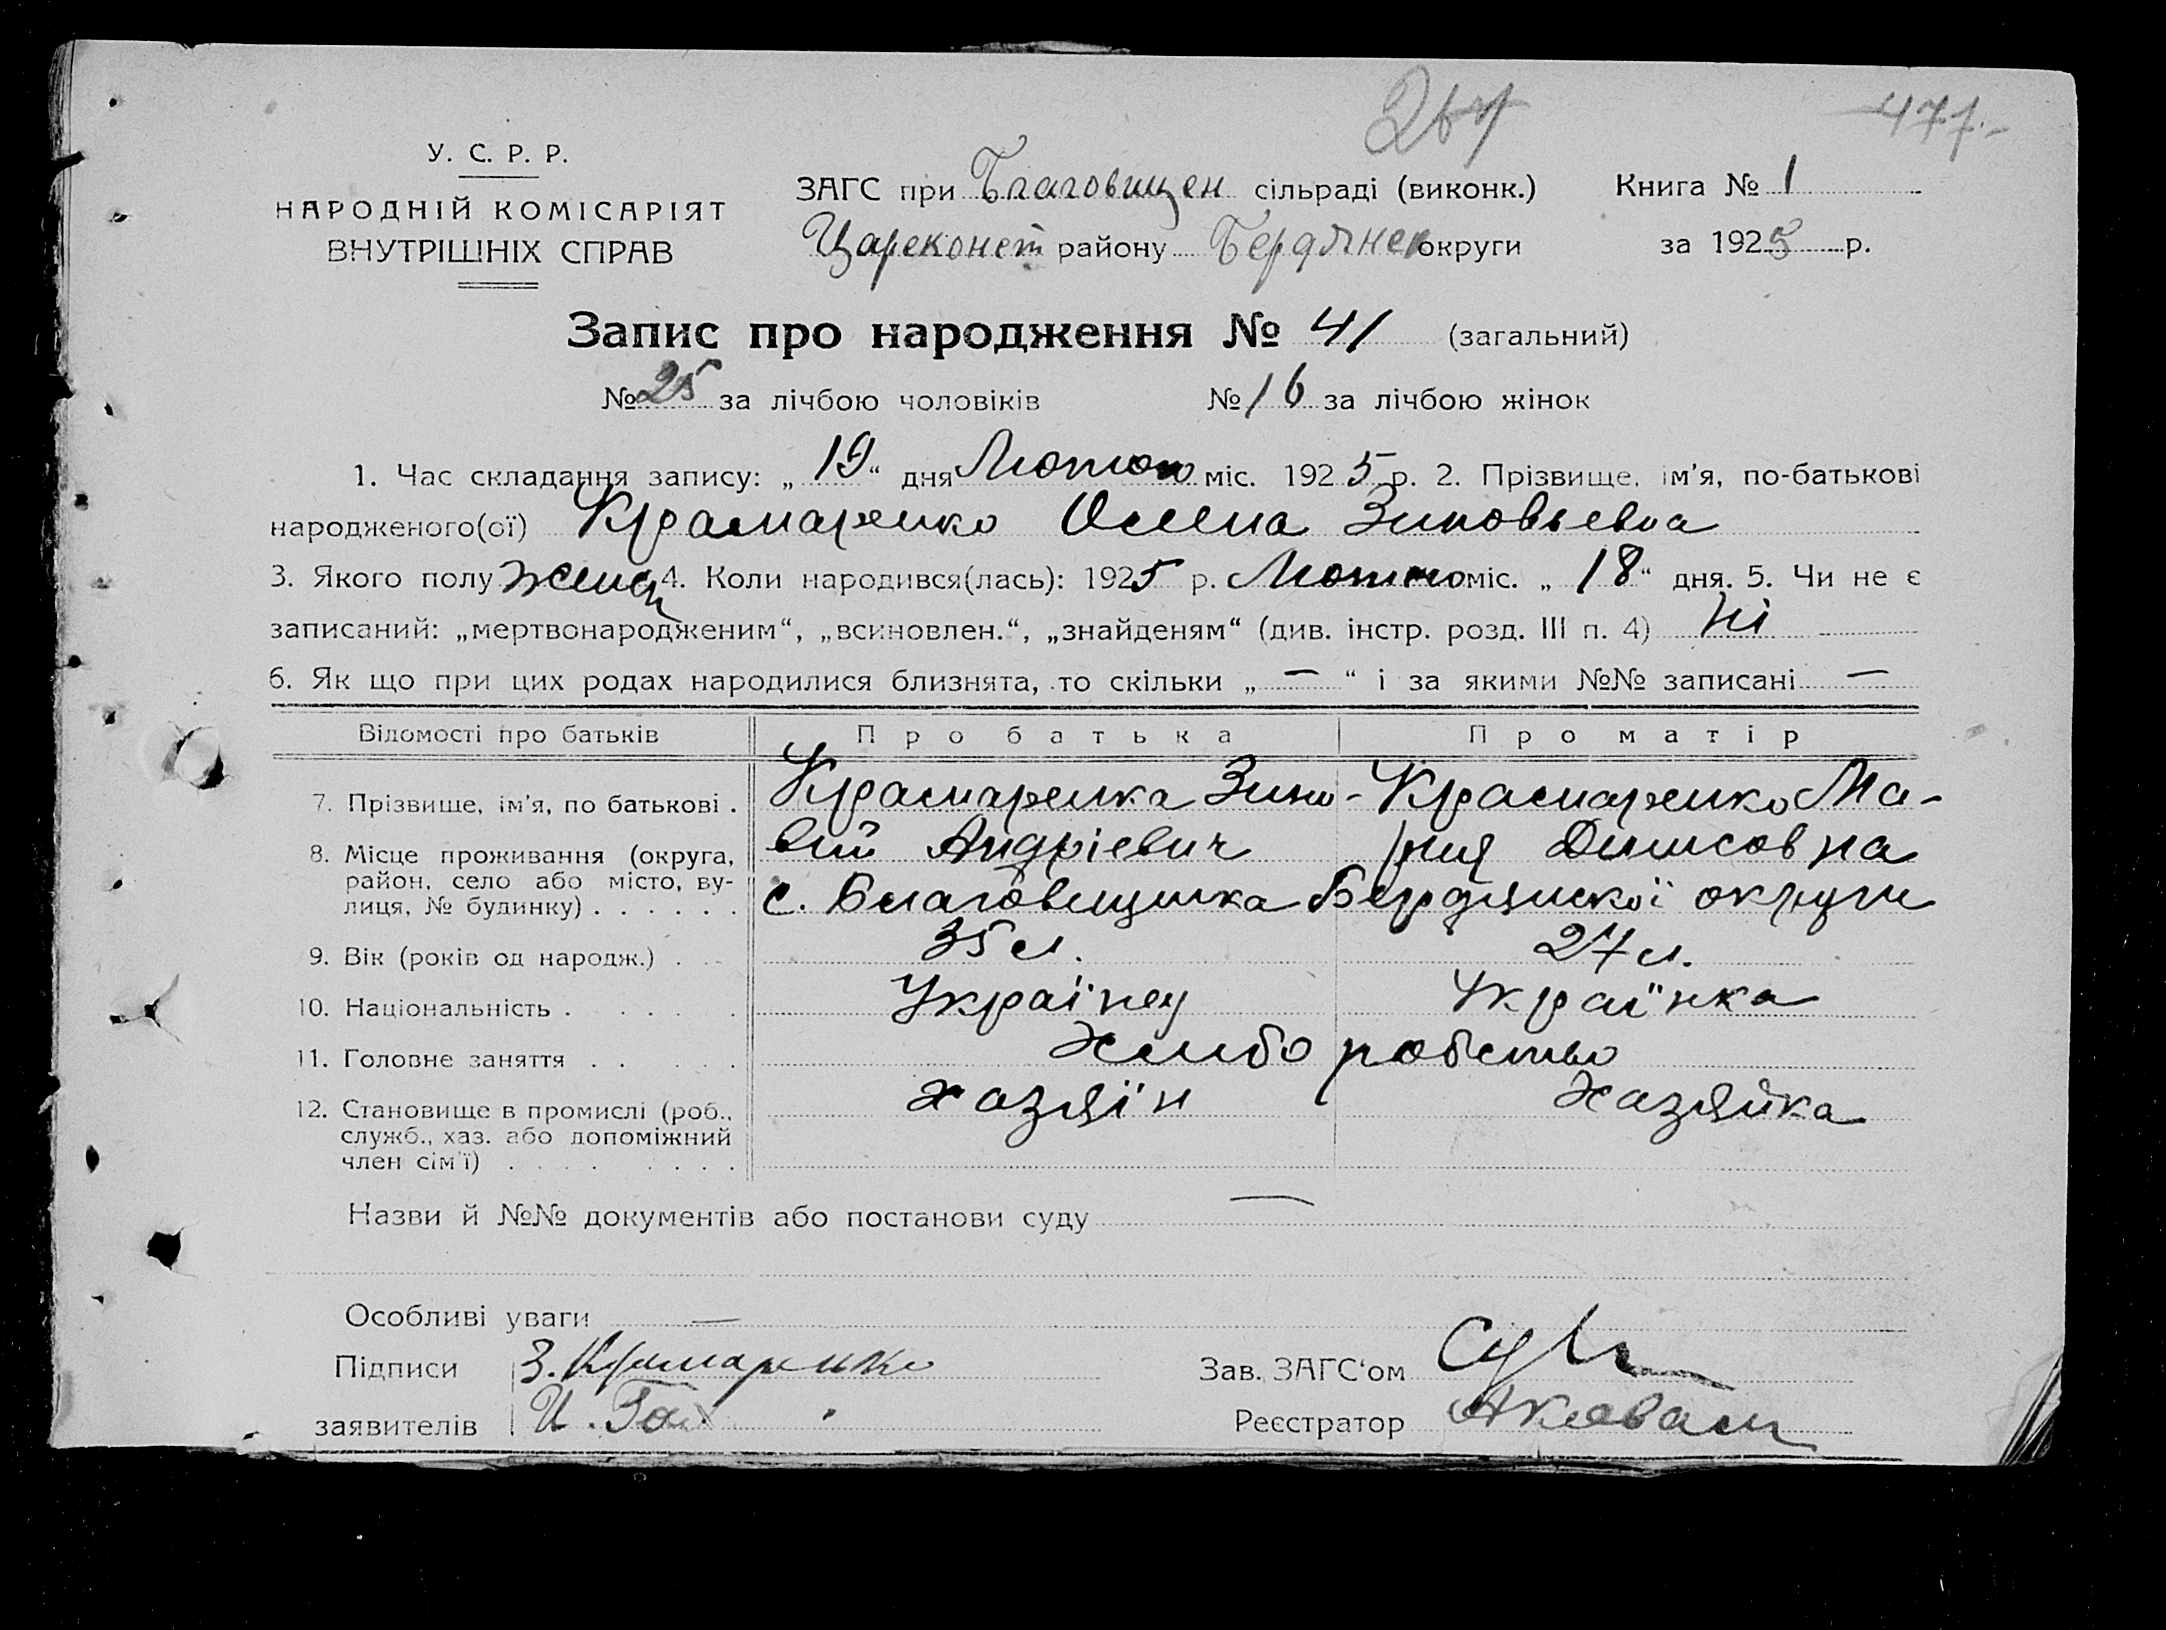 477.-
У. С. Р. Р.
НАРОДНІЙ КОМІСАРІЯТ
ВНУТРІШНІХ СПРАВ
ЗАГС при Благовищен сільраді (виконк.) Книга № 1
Цареконст району Бердянск округи за 1925 р.
Запис про народження № 41 (загальний)
№ 25 за лічбою чоловіків № 16 за лічбою жінок
1. Час складання запису: „19“ дня Лютого міс. 1925 р. 2. Прізвище, ім'я, по-батькові
народженого(ої) Крамаренко Олена Зиновьевна
3. Якого полу женс 4. Коли народився(лась): 1925 р. Лютого міс. „18“ дня. 5. Чи не є
записаний: „мертвонародженим“, „всиновлен.“, „знайденям“ (див. інстр. розд. III п. 4) Ні
6. Як що при цих родах народилися близнята, то скільки „—“ і за якими №№ записані —
Відомості про батьків Про батька Про матір
7. Прізвище, ім'я, по батькові . Крамаренка Зино- Крамаренко Ма-
вій Андріевич рия Денисовна
8. Місце проживання (округа, район, село або місто, ву-лиця, № будинку) . . . . . . с. Благовещинка Бердянскої округи
9. Вік (років од народж.) . 35 л. 27 л.
10. Національність . . . . . . Українец Українка
11. Головне заняття . . . . . Хлиборобство
12. Становище в промислі (роб., хазяїн Хазяйка
служб., хаз. або допоміжний
член сім'ї) . . . . . . . .
Назви й №№ документів або постанови суду —
Особливі уваги —
Підписи З. Крамаренко Зав. ЗАГС'ом
заявителів И. Реєстратор